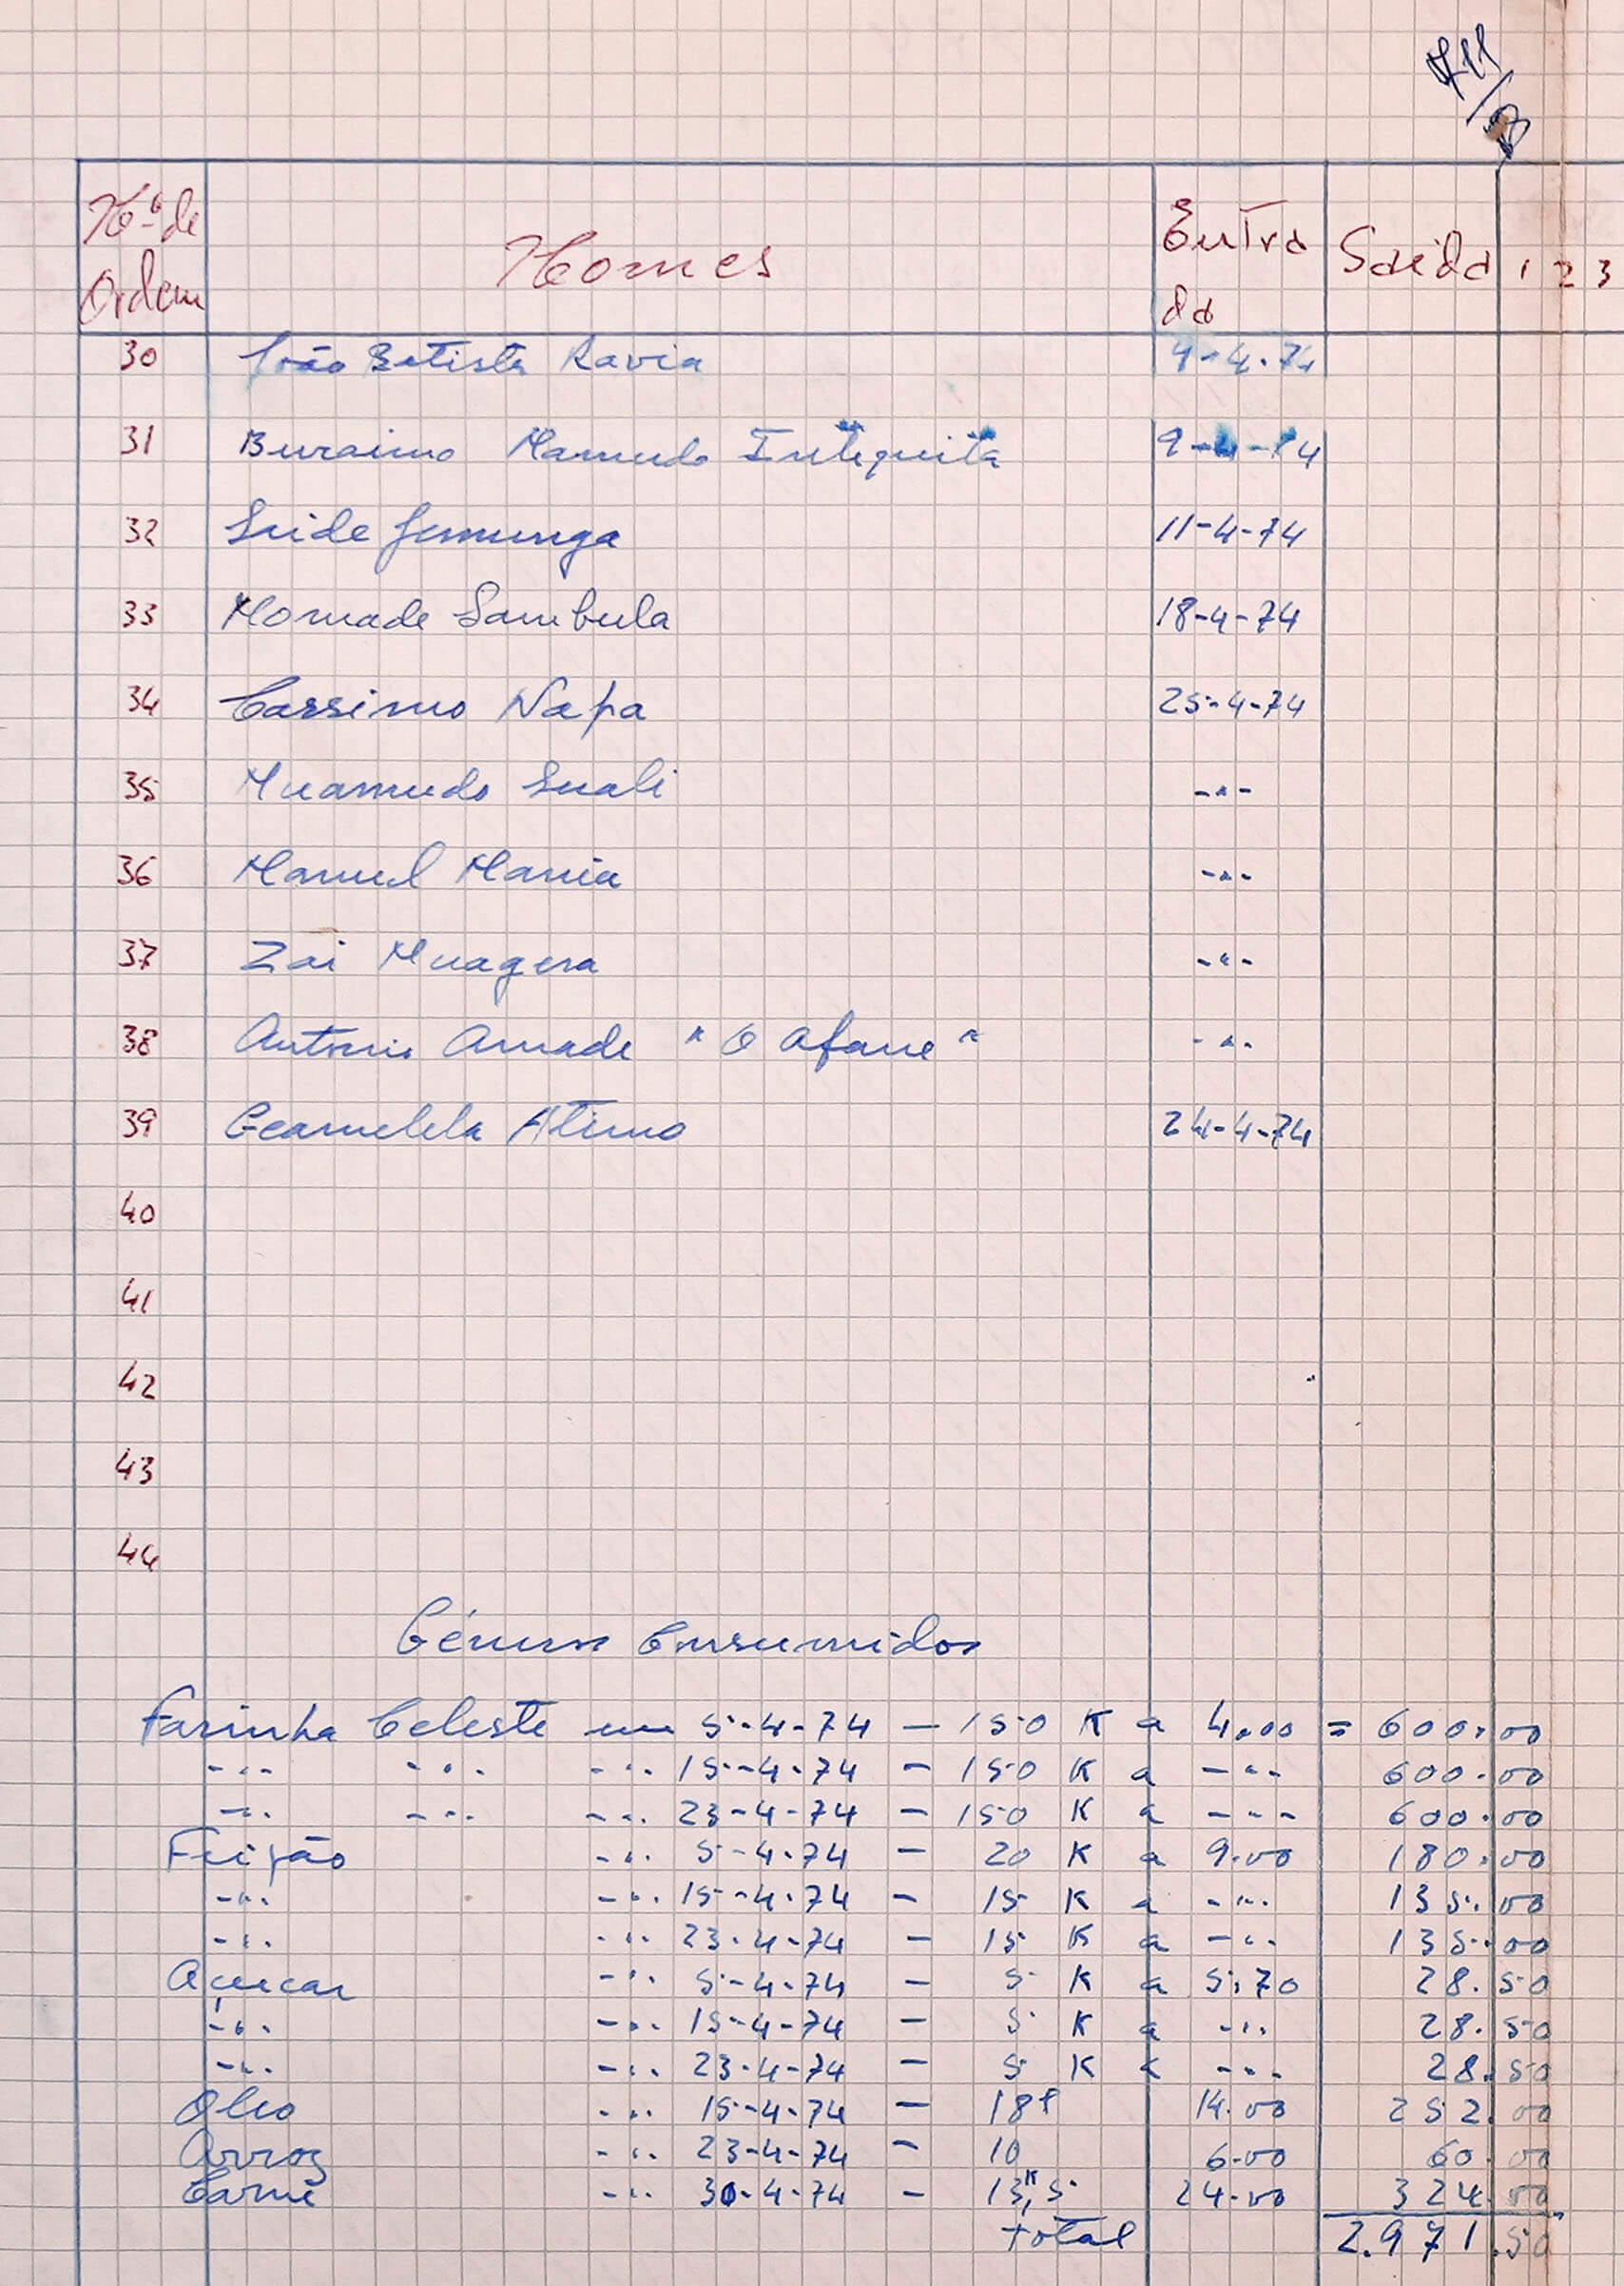 Nº de Ordem Nomes Entrada Saida 1 2 3
30 João Batista Ravia 9-4-74
31 Buraimo Mamudo Intequita 9-4-74
32 Saide Jamunga 11-4-74
33 Momade Sambula 18-4-74
34 Cassimo Napa 25-4-74
35 Muamudo Suali -"-
36 Manuel Mania -"-
37 Zai Muagera -"-
38 Antonio Amade "O Afane" -"-
39 Atimo 24-4-74
40
41
42
43
44
Géneros Consumidos
Farinha Celeste em 5-4-74 - 150 K a 4.00 = 600.00
-"- -"- -"- 15-4-74 - 150 K a -"- 600.00
-"- -"- -"- 23-4-74 - 150 K a -"- 600.00
Feijão -"- 5-4-74 - 20 K a 9.00 180.00
-"- -"- 15-4-74 - 15 K a -"- 135.00
-"- -"- 23-4-74 - 15 K a -"- 135.00
Açucar -"- 5-4-74 - 5 K a 5.70 28.50
-"- -"- 15-4-74 - 5 K a -"- 28.50
-"- -"- 23-4-74 - 5 K a -"- 28.50
Oleo -"- 15-4-74 - 18 l 14.00 252.00
Arroz -"- 23-4-74 - 10 6.00 60.00
Carne -"- 30-4-74 - 13,5 K 24.00 324.00
total 2.971.50